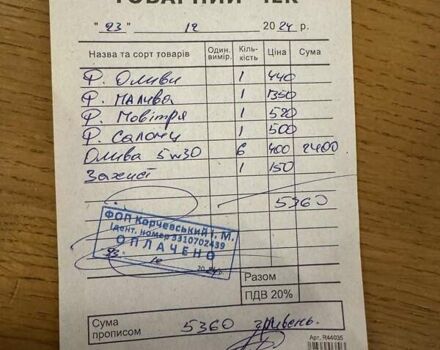 ТОВАРНИЙ ЧЕК
"23" 12 2024 р.
Назва та сорт товарів Один. вимір. Кіль-кість Ціна Сума
Ф. Оливи 1 440
Ф. Палива 1 1350
Ф. Повітря 1 520
Ф. Салону 1 500
Олива 5w30 6 400 2400
Захист 1 150
5360
ФОП Корчевський І. М.
Ідент. номер 3310702439
ОПЛАЧЕНО
23 12 2024
Разом
ПДВ 20%
Сума прописом 5360 гривень.
Арт. R44035